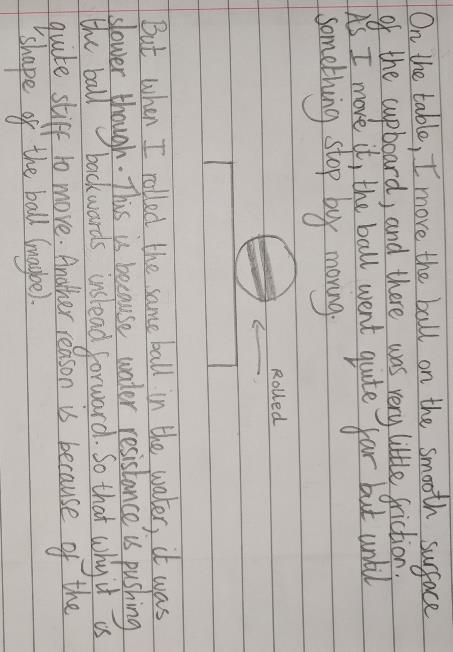 On the table, I move the ball on the smooth surface
of the cupboard, and there was very little friction.
As I move it, the ball went quite far but until
something stop by moving.
Rolled
But when I rolled the same ball in the water, it was
slower though. This is because water resistance is pushing
the ball backwards instead forward. So that why it is
quite stiff to move. Another reason is because of the
shape of the ball (maybe).